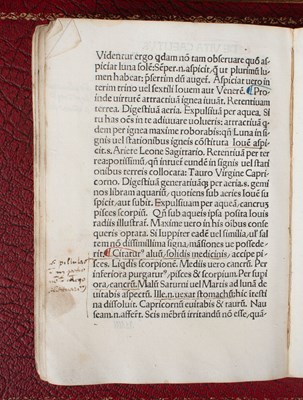 Videntur ergo qdam nõ tam obseruare quõ as
piciat luna solẽ: Sẽper.n.aspicit.qt ut plurimũ lu
men habeat: psertim dũ auget. Aspiciat uero in
terim trino uel sextili Iouem aut Venerẽ. Pro
inde uirtutẽ attractiuã ignea iuuãt. Retentiuam
terrea. Digestiuã aeria. Expulsiuã per aquea. Si
tu has oẽs in te adiuuare uolueris: attractiuã qi
dem per ignea maxime roborabis: qñ Luna in si
gnis uel stationibus igneis cõstituta Iouẽ aspi
cit.s. Ariete Leone Sagittario. Retentiuã per ter
rea: potissimũ. qñ intuet eundẽ in signis uel stati
onibus terreis collocata: Tauro Virgine Capri
corno. Digestiuã generatiuãq; per aeria.s. gemi
nos libram aquariũ. quotiens sub aeries Iouẽ sus
picit, aut subit. Expulsiuam per aquea: cancerũ
pisces scorpiũ. Qñ sub aqueis ipsa posita Iouis
radiis illustrat. Maxime uero in his oibus conse
queris optata. Si Iuppiter eadẽ uel familia aut sal
tem nõ dissimillima signa, mãsiones ue possede
rit. Citatur aluus solidis medicinis, accipe pi
sces. Liqdis scorpionẽ. Mediis uero cancrũ. Per
inferiora purgatur, pisces & scorpium. Per supi
ora, cancrum. Malũ Saturni uel Martis ad lunã de
uitabis aspectũ. Ille.n.uexat stomachũ: hic itesti
na dissoluit. Capricornũ euitabis & taurũ. Nau
seam.n.affert. Seis mẽbris irritandũ nõ esse, quã-